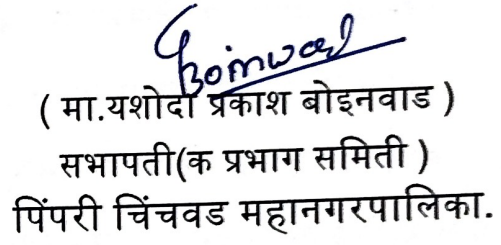 Boinwad
( मा.यशोदा प्रकाश बोइनवाड )
सभापती(क प्रभाग समिती )
पिंपरी चिंचवड महानगरपालिका.